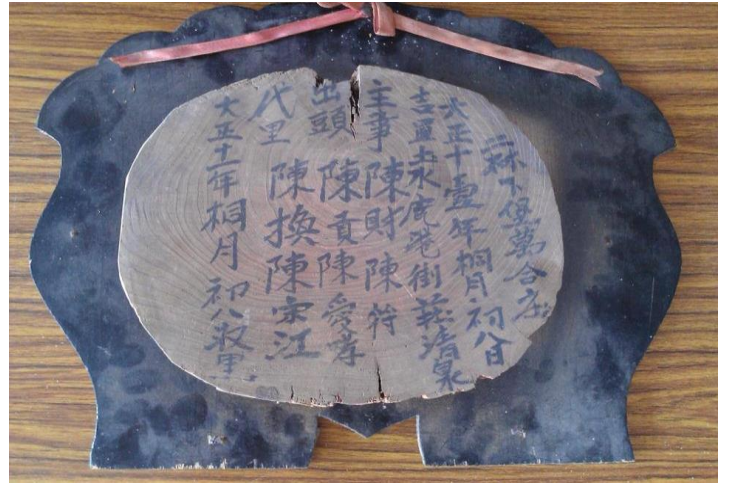 二林下堡萬合庄
大正十壹年桐月初八日
吉置土水鹿港街莊清泉
主事陳財陳符
出頭陳貢陳愛孝
代里陳換陳宗江
大正十一年桐月初八敬置